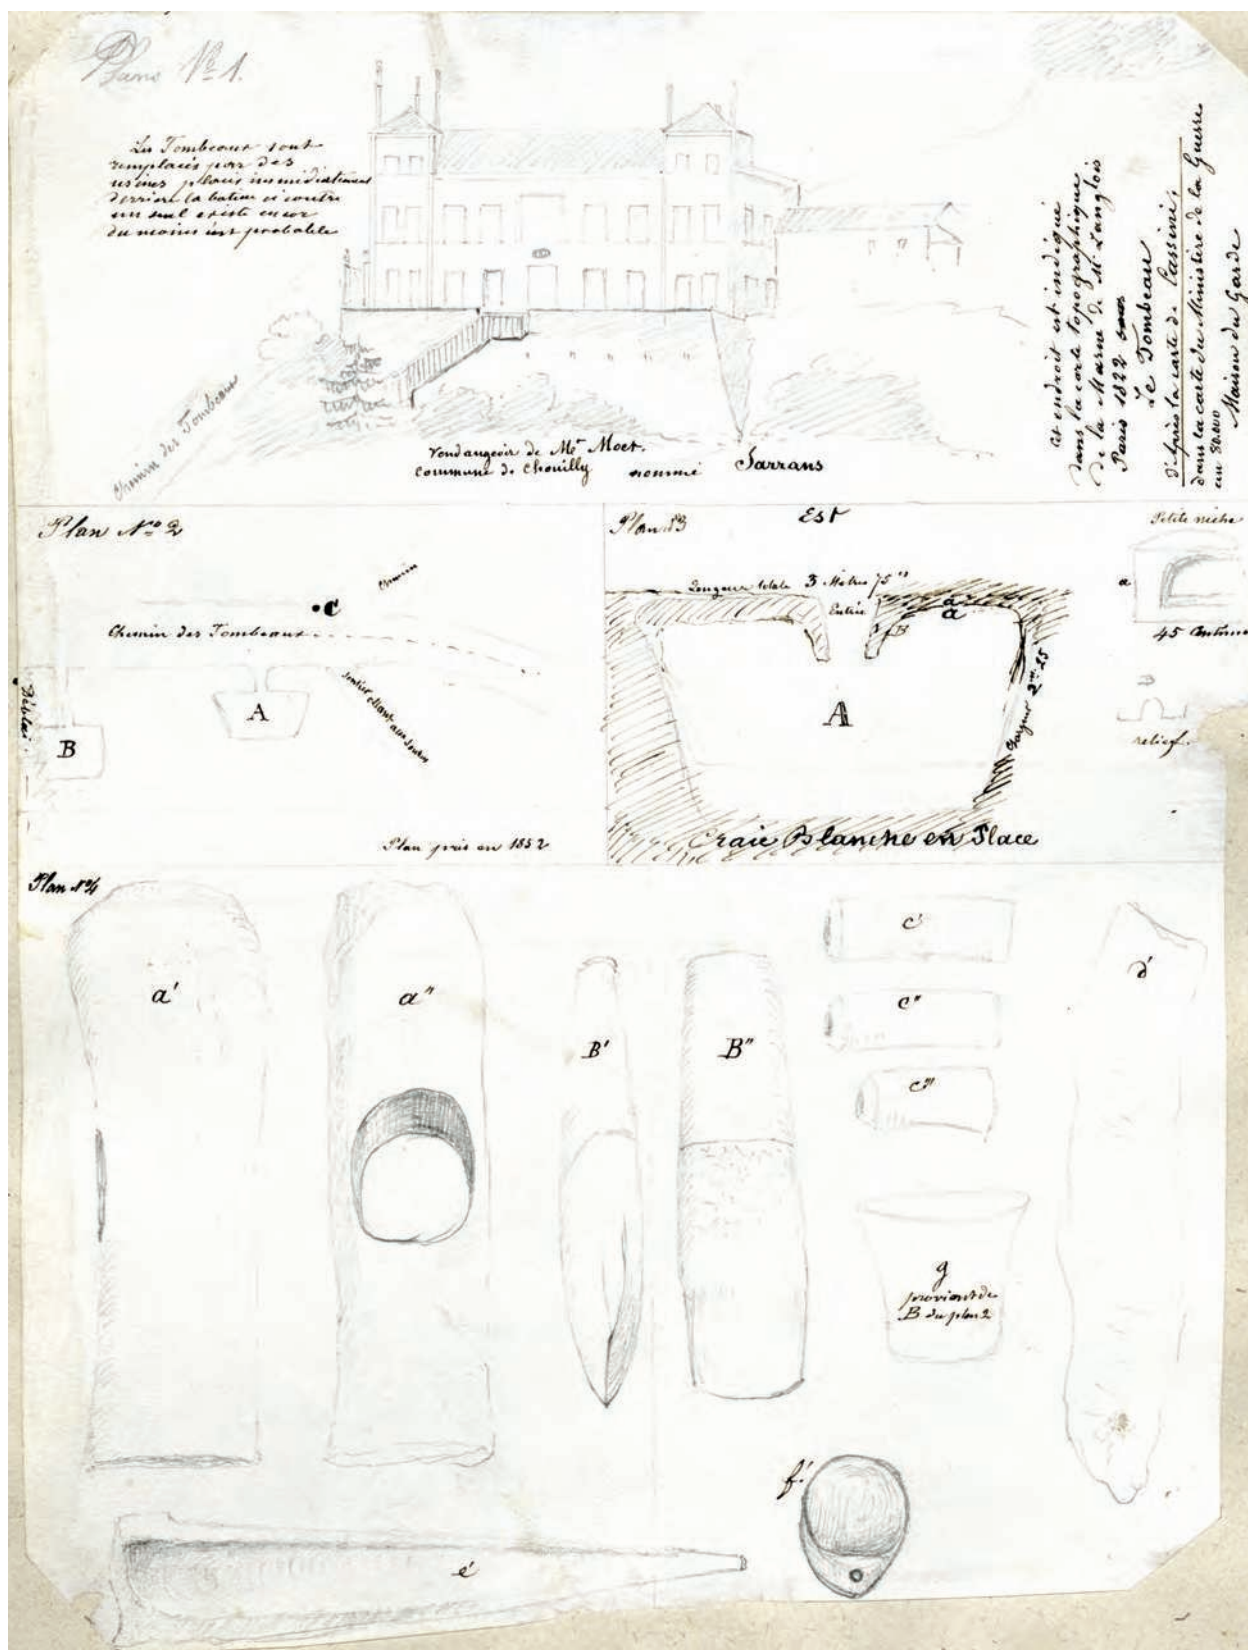 Plans No 1.
Les Tombeaux sont
remplacés par des
usines placés immédiatement
derriere la batim ci contre
un seul existe encor
du moins ist probable
Chemin des Tombeaux
Vendangeoir de Mr Moet.
Commune de Chouilly nommé Sarrans
cet endroit est indiqué
dans la carte topographique
de la Marne de Mr Langlois
Paris 1822
Le Tombeau
d'après la carte de Cassini;
dans la carte du Ministere de la Guerre
au 80.000
Maison du Garde
Plan No 2
Chemin
C
Chemin des Tombeaux
A
B
Déblai
Sentier allant aux
Plan pris en 1852
Plan n3
Est
Longeur totale 3 Mètres 75
Entrée
a
B
A
Largeur 2m 25
Craie Blanche en Place
Petite niche
a
45 Centim
B
relief.
Plan No 4
a'
a"
B'
B"
C'
C"
C'''
d'
g
provient de
B du plan 2
f'
é